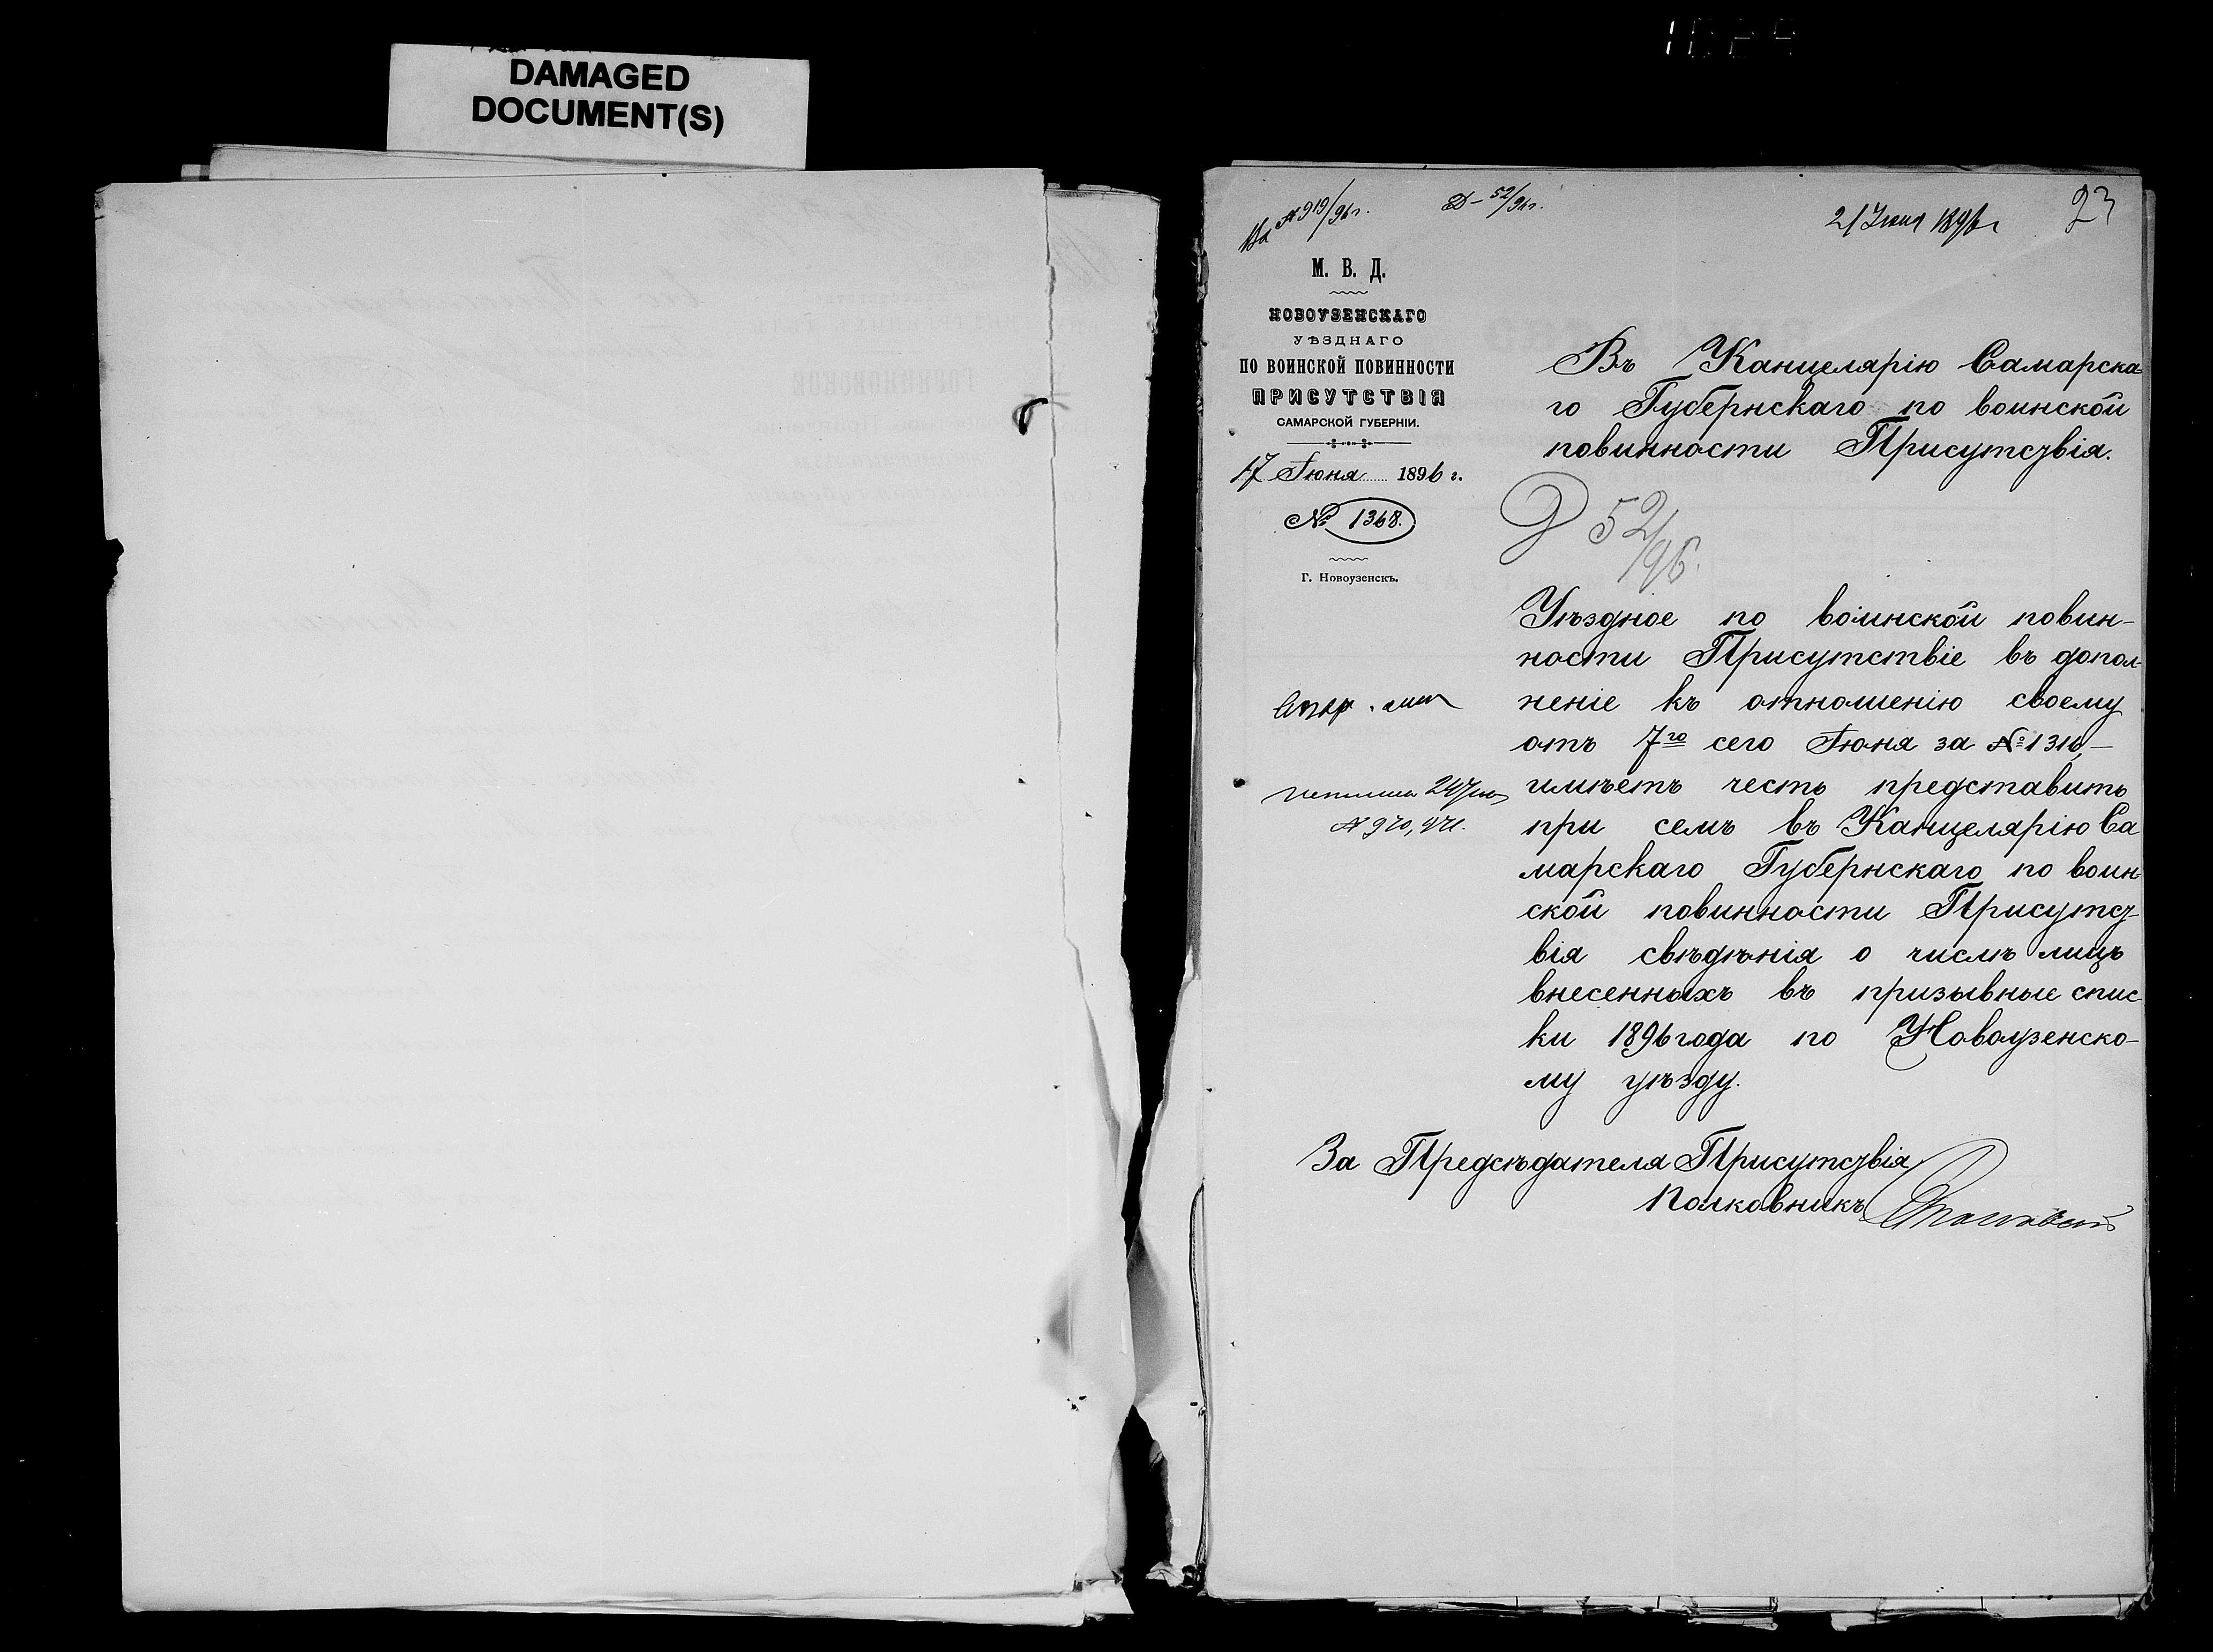 DAMAGED
DOCUMENT(S)
Вх № 919/96 г.
Д – 52/96 г.
21 Іюня 1896 г
23
М. В. Д.
НОВОУЗЕНСКАГО
УѢЗДНАГО
ПО ВОИНСКОЙ ПОВИННОСТИ
ПРИСУТСТВІЯ
САМАРСКОЙ ГУБЕРНІИ.
17 Іюня 1896 г.
№ 1368.
Г. Новоузенскъ.
Въ Канцелярію Самарска
го Губернскаго по воинской
повинности Присутствія.
Д 52/96.
Уѣздное по воинской повин-
ности Присутствіе въ допол-
неніе къ отношенію своему
отъ 7го сего Іюня за № 1316,–
имѣетъ честь представить
при семъ въ Канцелярію Са
марскаго Губернскаго по воин
ской повинности Присутст-
вія свѣдѣнія о числѣ лицъ
внесенныхъ въ призывные спис-
ки 1896 года по Новоузенско-
му уѣзду.
За Предсѣдателя Присутствія
Полковникъ